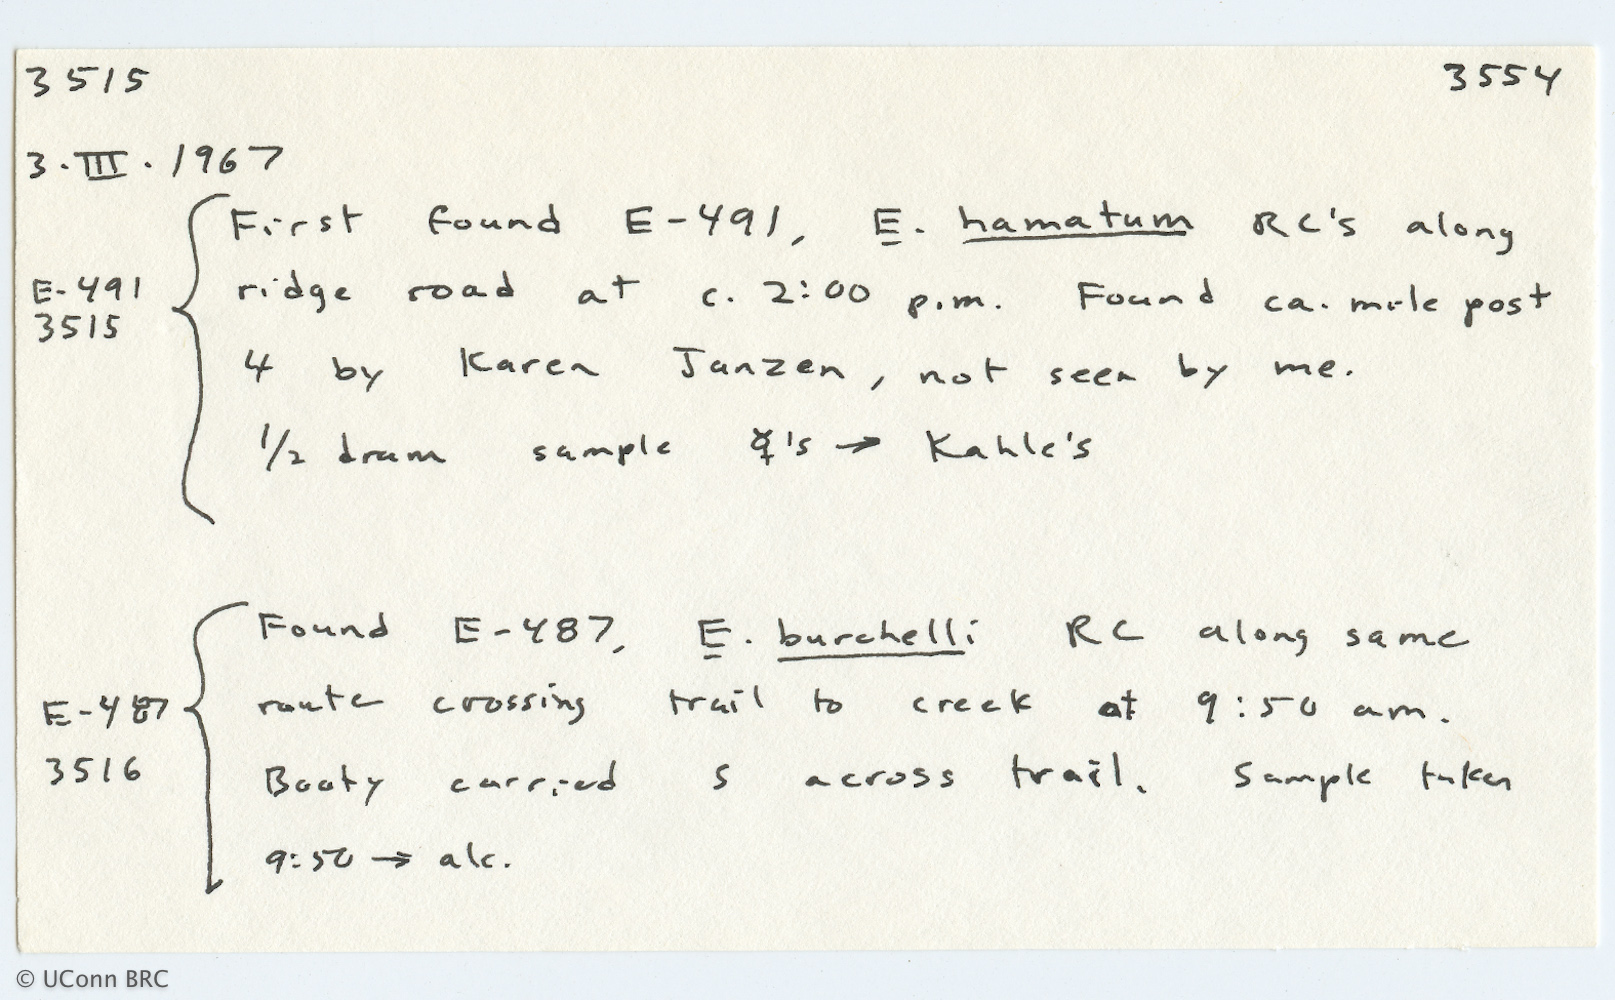 3515 3554
3·III·1967
First found E-491, E. hamatum RC's along
E-491
3515
ridge road at c. 2:00 p.m. Found ca. mile post
4 by Karen Janzen, not seen by me.
1/2 dram sample ☿'s → Kahle's
Found E-487, E. burchelli RC along same
E-487
3516
route crossing trail to creek at 9:50 am.
Booty carried S across trail. Sample taken
9:50 → alc.
© UConn BRC